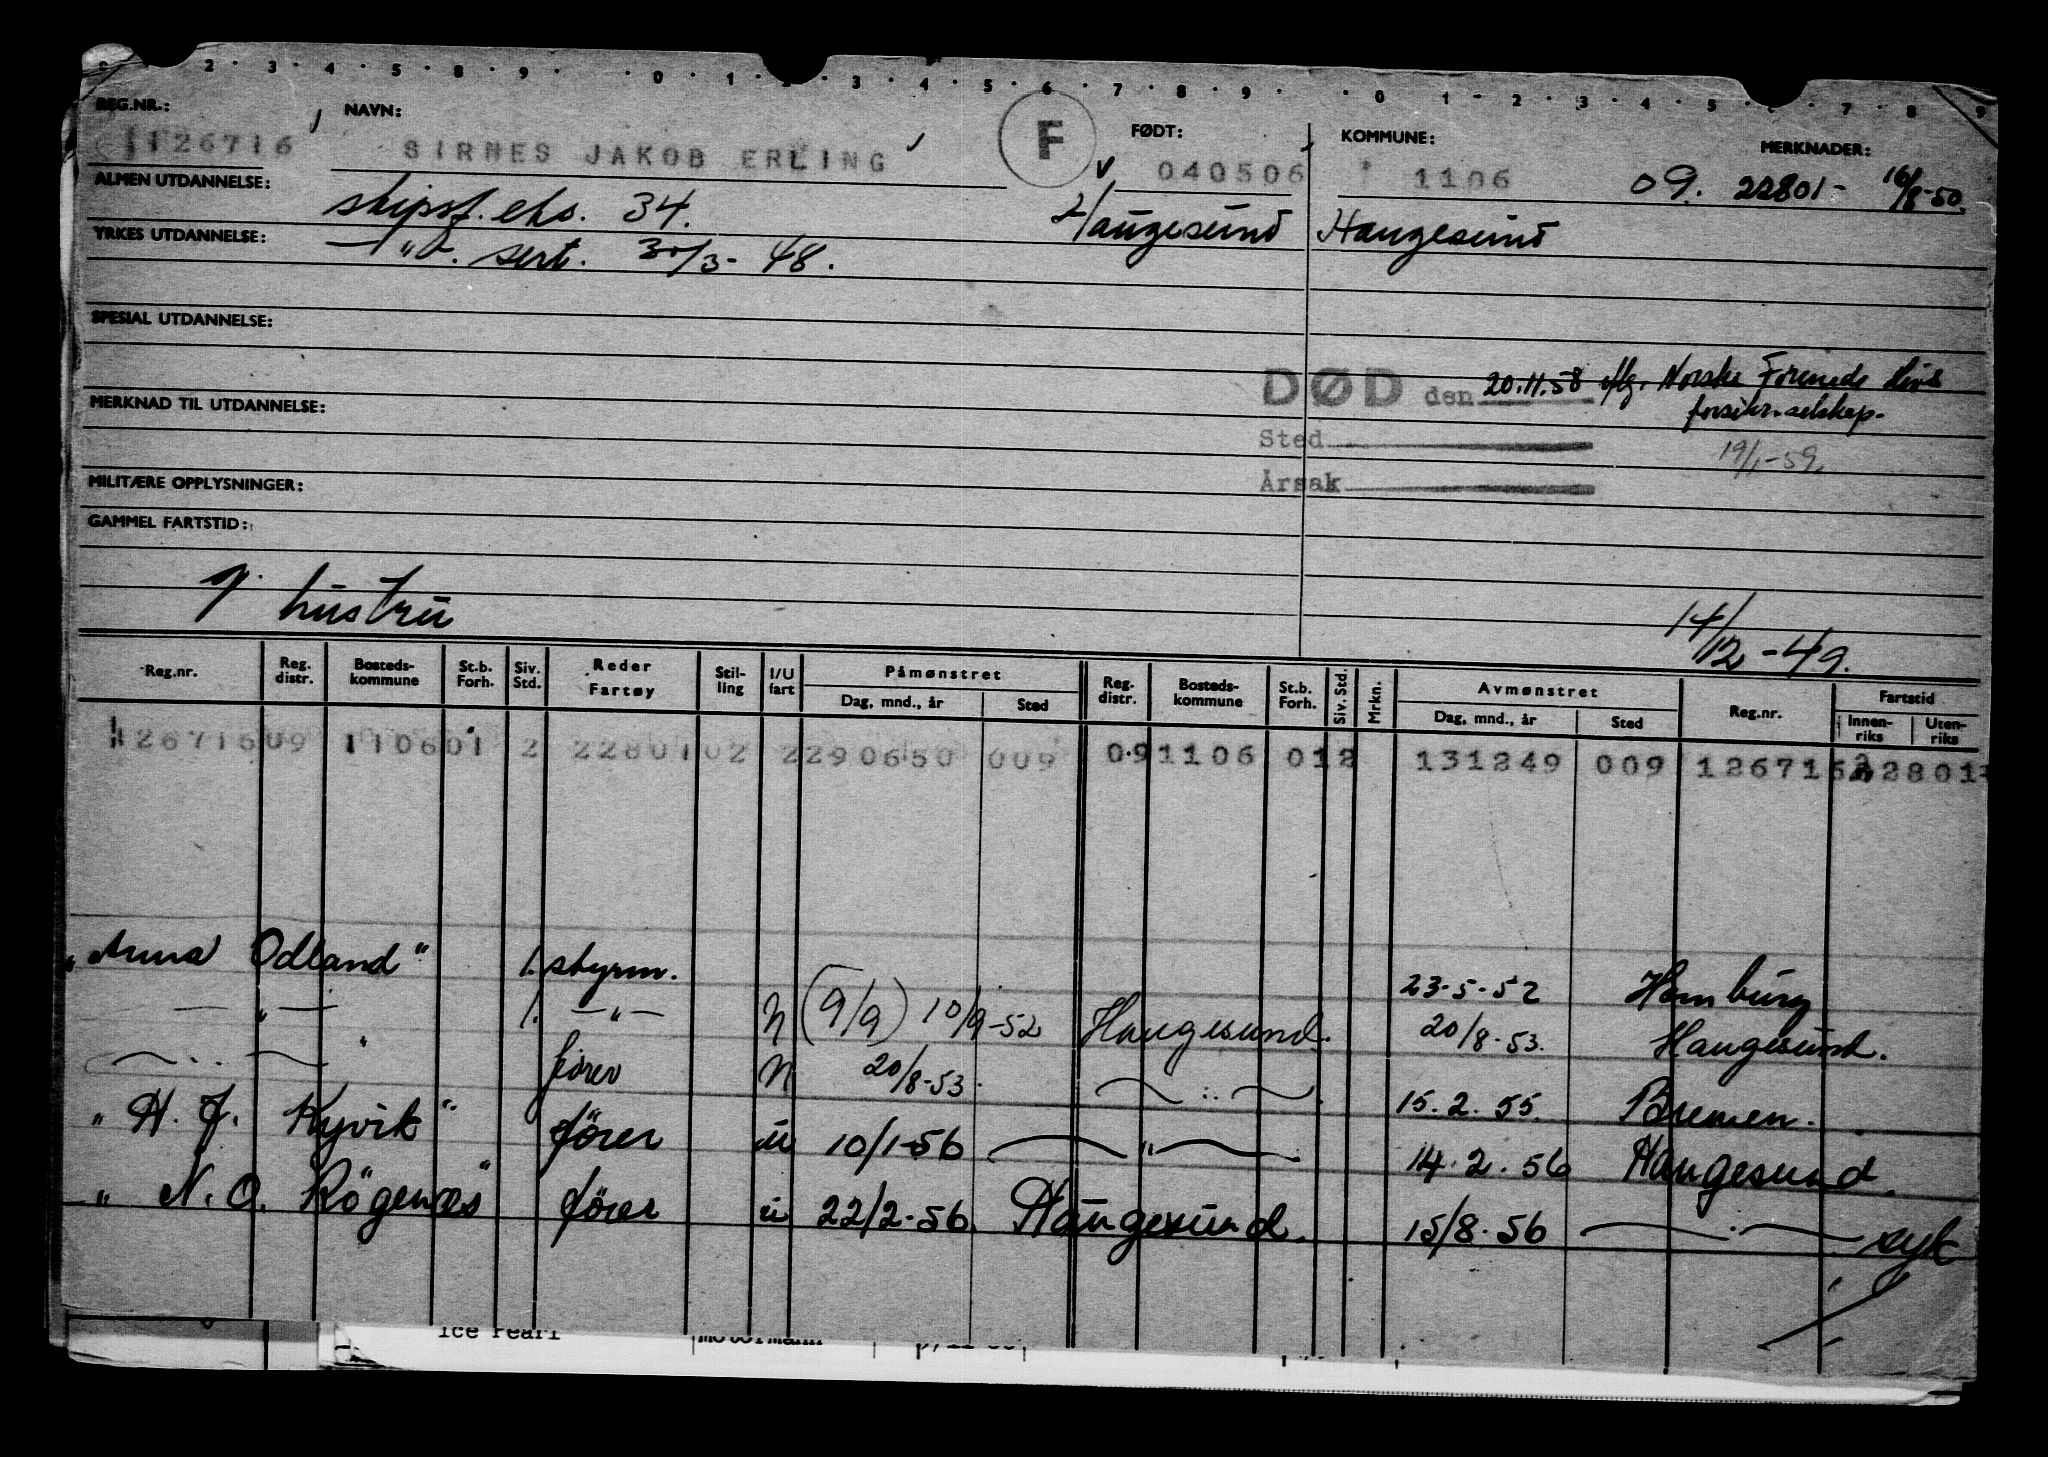 REG.NR.: NAVN: FØDT: KOMMUNE: MERKNADER:
126716 SIRNES JAKOB ERLING F 040506 1106 09. 22801- 16/8-50
ALMEN UTDANNELSE: skipsf. eks. 34. Haugesund Haugesund
YRKES UTDANNELSE: —"— sert. 30/3-48.
SPESIAL UTDANNELSE:
DØD den 20.11.58 iflg. Norske Forenede Livs
MERKNAD TIL UTDANNELSE: forsikr.selskap.
Sted 19/1-59
MILITÆRE OPPLYSNINGER: Årsak
GAMMEL FARTSTID:
g. hustru 14/12-49.
Reg.nr. Reg. distr. Bosteds-kommune St.b. Forh. Siv. Std. Reder Fartøy Stil-ling I/U fart Påmønstret Dag, mnd., år Sted Reg. distr. Bosteds-kommune St.b. Forh. Siv. Std. Mrkn. Avmønstret Dag, mnd., år Sted Reg.nr. Fartstid Innen-riks Uten-riks
126716 09 1106 01 2 22801 02 2 290650 009 09 1106 01 2 131249 009 126716 22801
"Anna Odland" 1. styrm. 23-5-52 Hamburg
—"— 1. —"— N (9/9) 10/9-52 Haugesund. 20/8-53. Haugesund.
—"— fører N 20/8-53. —"— 15.2.55. Bremen.
"H. J. Kyvik" fører u 10/1-56 —"— 14.2.56 Haugesund.
"N. O. Rögenæs" fører u 22/2-56. Haugesund. 15/8-56 —"— syk
Ice Pearl